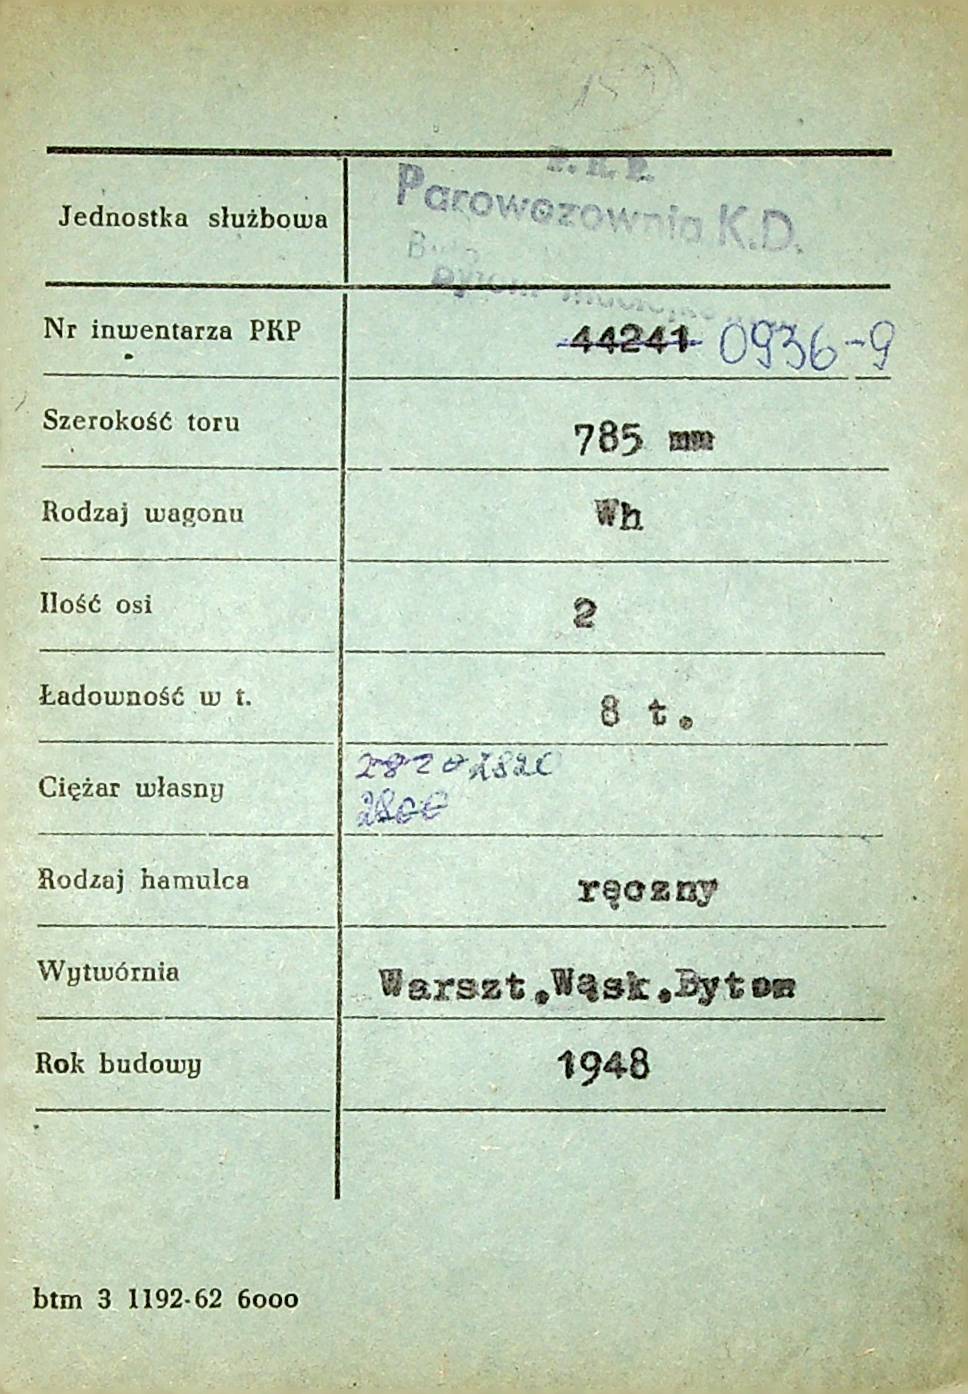 P. K. P.
Jednostka służbowa Parowozownia K.D.
Nr inwentarza PKP 44241 0936-9
Szerokość toru 785 mm
Rodzaj wagonu Wh
Ilość osi 2
Ładowność w t. 8 t.
2820 2820
Ciężar własny
2800
Rodzaj hamulca ręczny
Wytwórnia Warszt.Wąsk.Bytom
Rok budowy 1948
btm 3 1192-62 6000